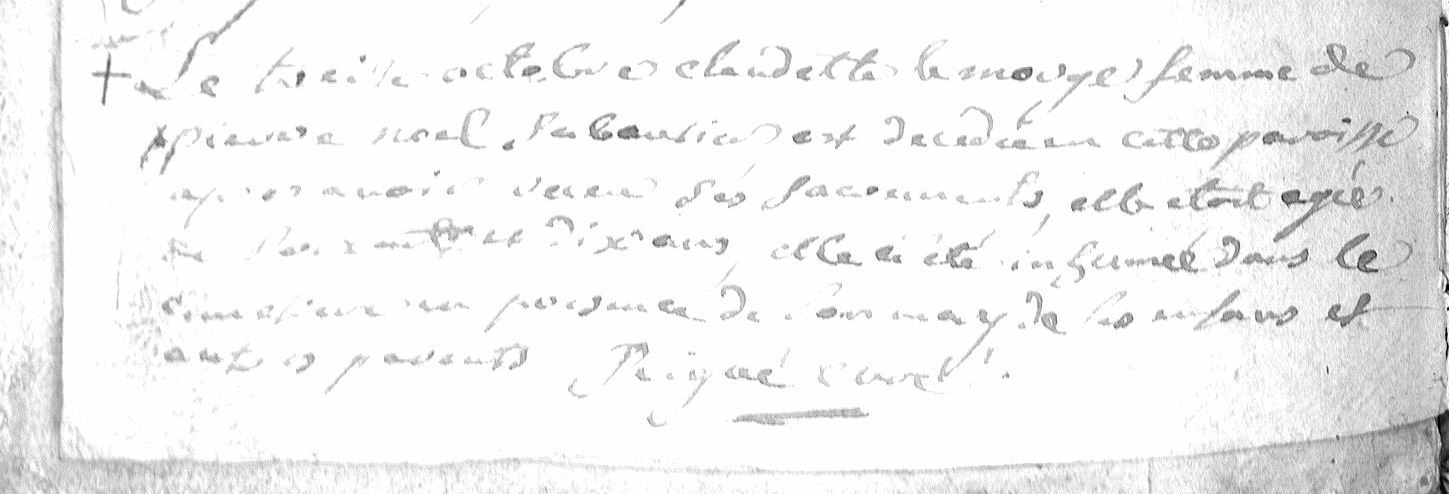 + Le treise octobre claudette lemouge femme de
pierre noel est decedée en cette paroisse
apres avoir receu ses sacrements, elle etoit agée
de soixante et dix ans, elle a été inhumée dans le
cimetiere en presence de son mary de ses enfans et
autres parents curé.